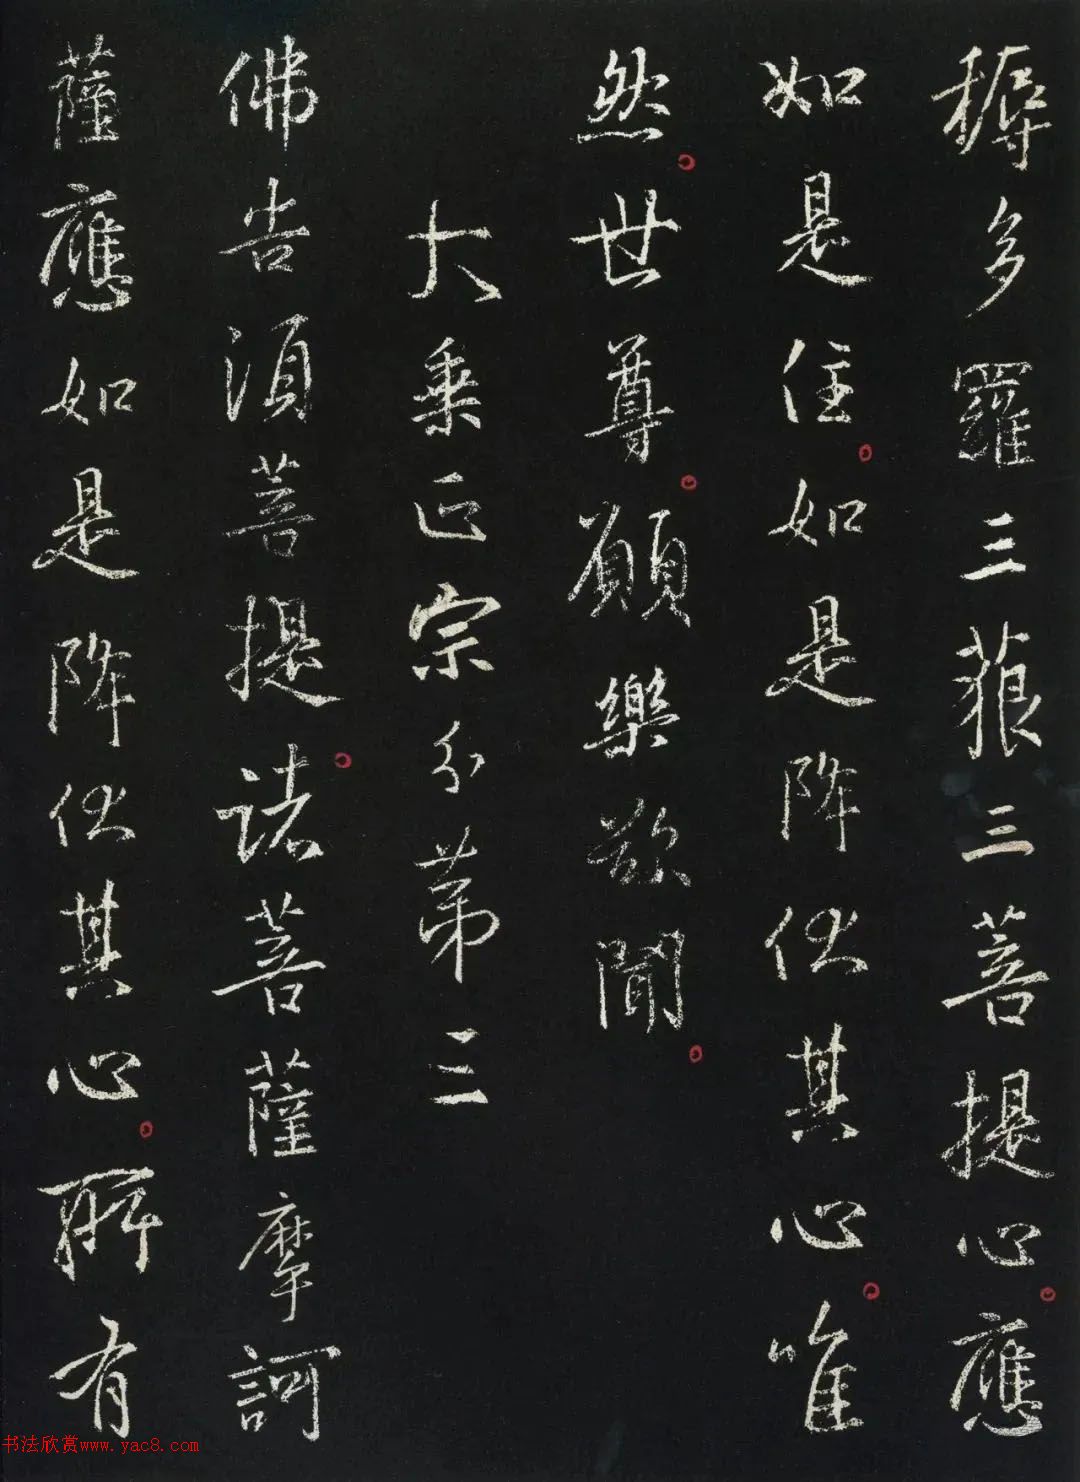 耨多羅三藐三菩提心應
如是住如是降伏其心唯
然世尊願樂欲聞
大乘正宗分第三
佛告須菩提諸菩薩摩訶
薩應如是降伏其心所有
书法欣赏www.yac8.com